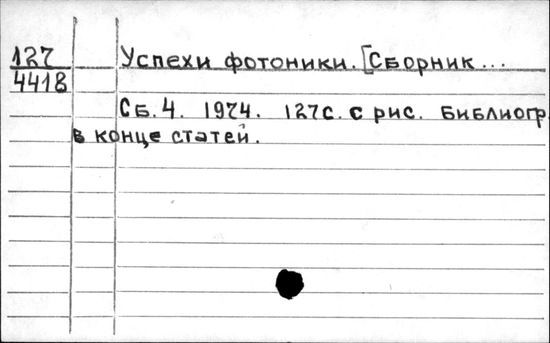 127 Успехи фотоники. [Сборник ...
4418
Сб. 4. 1974. 127с. с рис. Библиогр.
в конце статей.